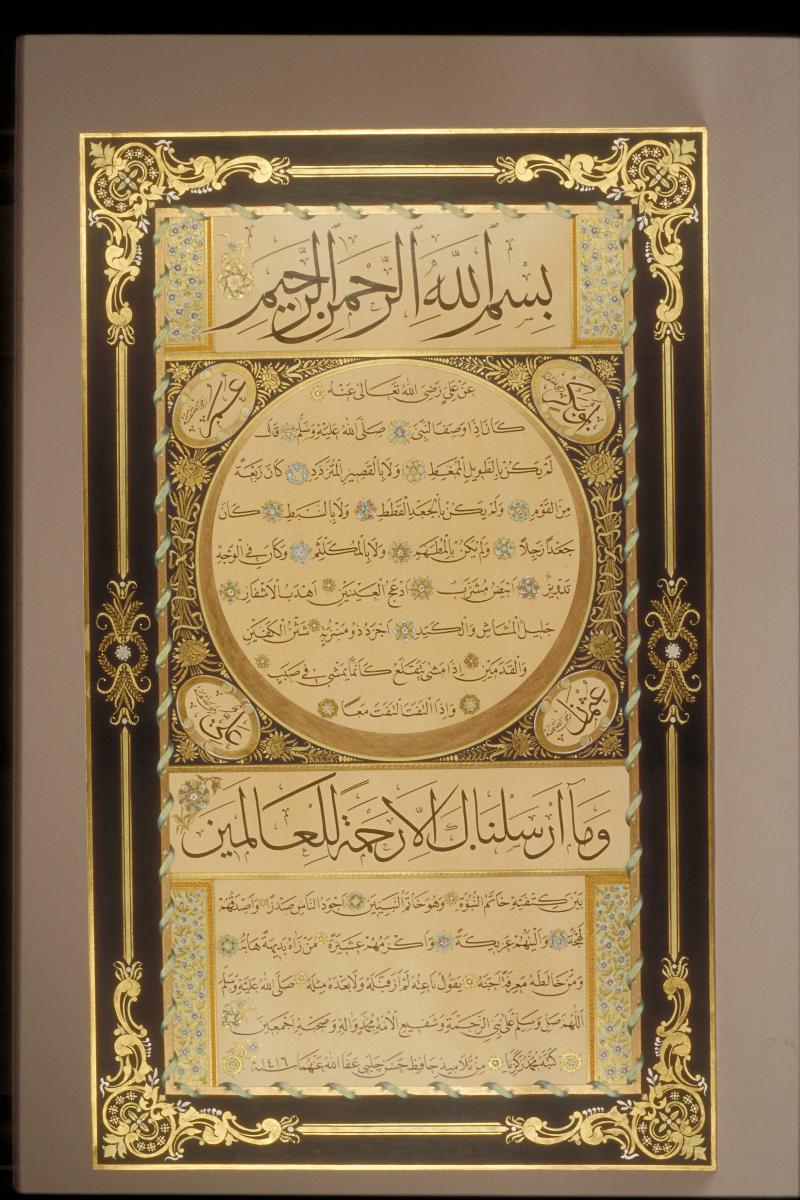 بِسْمِ اللهِ الرَّحْمٰنِ الرَّحِيمِ
عَنْ عَلِيٍّ رَضِيَ اللهُ تَعَالىٰ عَنْهُ
أبو بكر رضي الله عنه
عمر رضي الله عنه
كَانَ إِذَا وَصَفَ النَّبِيَّ صَلَّى اللهُ عَلَيْهِ وَسَلَّمَ قَالَ
لَمْ يَكُنْ بِالطَّوِيلِ الْمُمَغَّطِ وَلَا بِالْقَصِيرِ الْمُتَرَدِّدِ كَانَ رَبْعَةً
مِنَ الْقَوْمِ وَلَمْ يَكُنْ بِالْجَعْدِ الْقَطَطِ وَلَا بِالسَّبِطِ كَانَ
جَعْدًا رَجِلًا وَلَمْ يَكُنْ بِالْمُطَهَّمِ وَلَا بِالْمُكَلْثَمِ وَكَانَ فِي الْوَجْهِ
تَدْوِيرٌ اَبْيَضُ مُشْرَبٌ اَدْعَجُ الْعَيْنَيْنِ اَهْدَبُ الْاَشْفَارِ
جَلِيلُ الْمُشَاشِ وَالْكَتَدِ اَجْرَدُ ذُو مَسْرُبَةٍ شَثْنُ الْكَفَّيْنِ
وَالْقَدَمَيْنِ اِذَا مَشٰى يَتَقَلَّعُ كَاَنَّمَا يَمْشِي فِي صَبَبٍ
وَاِذَا الْتَفَتَ الْتَفَتَ مَعًا
عثمان رضي الله عنه
علي رضي الله عنه
وَمَا اَرْسَلْنَاكَ اِلَّا رَحْمَةً لِلْعَالَمِينَ
بَيْنَ كَتِفَيْهِ خَاتَمُ النُّبُوَّةِ وَهُوَ خَاتَمُ النَّبِيِّينَ اَجْوَدُ النَّاسِ صَدْرًا وَاَصْدَقُهُمْ
لَهْجَةً وَاَلْيَنُهُمْ عَرِيكَةً وَاَكْرَمُهُمْ عَشِيرَةً مَنْ رَاٰهُ بَدِيهَةً هَابَهُ
وَمَنْ خَالَطَهُ مَعْرِفَةً اَحَبَّهُ يَقُولُ نَاعِتُهُ لَمْ اَرَ قَبْلَهُ وَلَا بَعْدَهُ مِثْلَهُ صَلَّى اللهُ عَلَيْهِ وَسَلَّمَ
اَللّٰهُمَّ صَلِّ وَسَلِّمْ عَلٰى نَبِيِّ الرَّحْمَةِ وَشَفِيعِ الْاُمَّةِ مُحَمَّدٍ وَاٰلِهِ وَصَحْبِهِ اَجْمَعِينَ
كَتَبَهُ مُحَمَّد زَكَرِيَّا مِنْ تَلَامِيذِ حَافِظ حَسَن چَلَبِي عَفَا اللهُ عَنْهُمَا سنة ١٤١٦